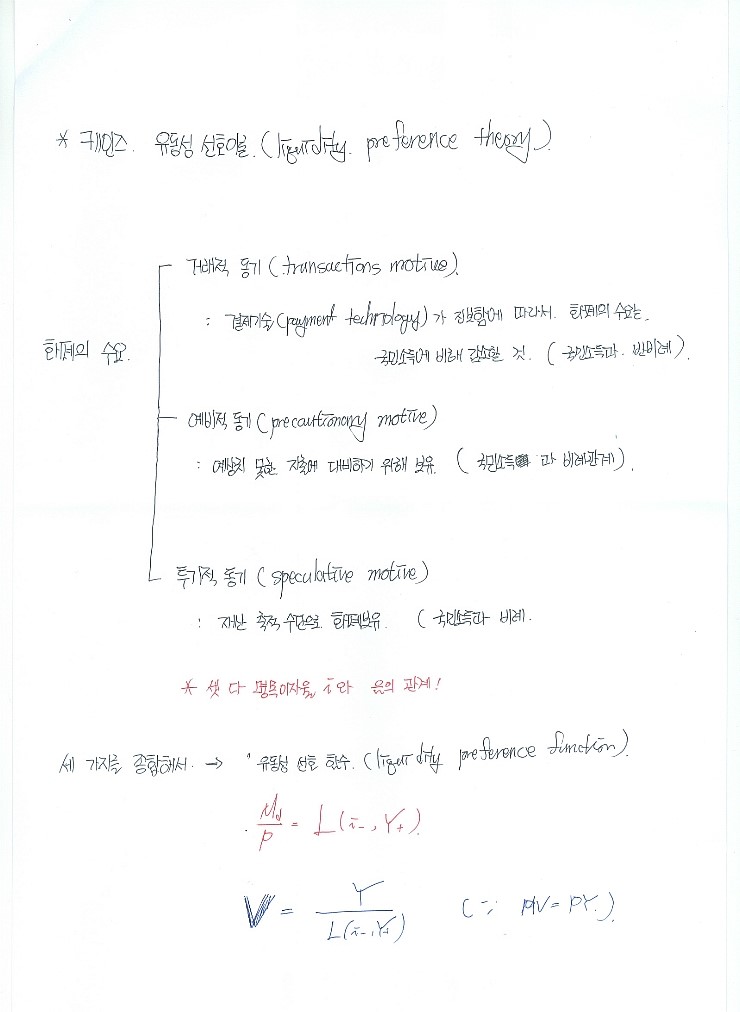 * 케인즈. 유동성 선호이론. (liquidity preference theory).
거래적 동기 (transactions motive).
: 결제기술(payment technology)가 진보함에 따라서. 화폐의 수요는,
화폐의 수요.
국민소득에 비해 감소할 것. (국민소득과 반비례).
예비적 동기 (precautionary motive)
: 예상치 못한 지출에 대비하기 위해 보유. (국민소득과 비례관계).
투기적 동기 (speculative motive)
: 재산 축적 수단으로 화폐보유. (국민소득과 비례.
* 셋 다 명목이자율 i와 음의 관계!
세 가지를 종합해서. → 유동성 선호 함수. (liquidity preference function).
Md/P = L(i-, Y+).
V = Y/L(i-, Y+) (∵ MV = PY.).